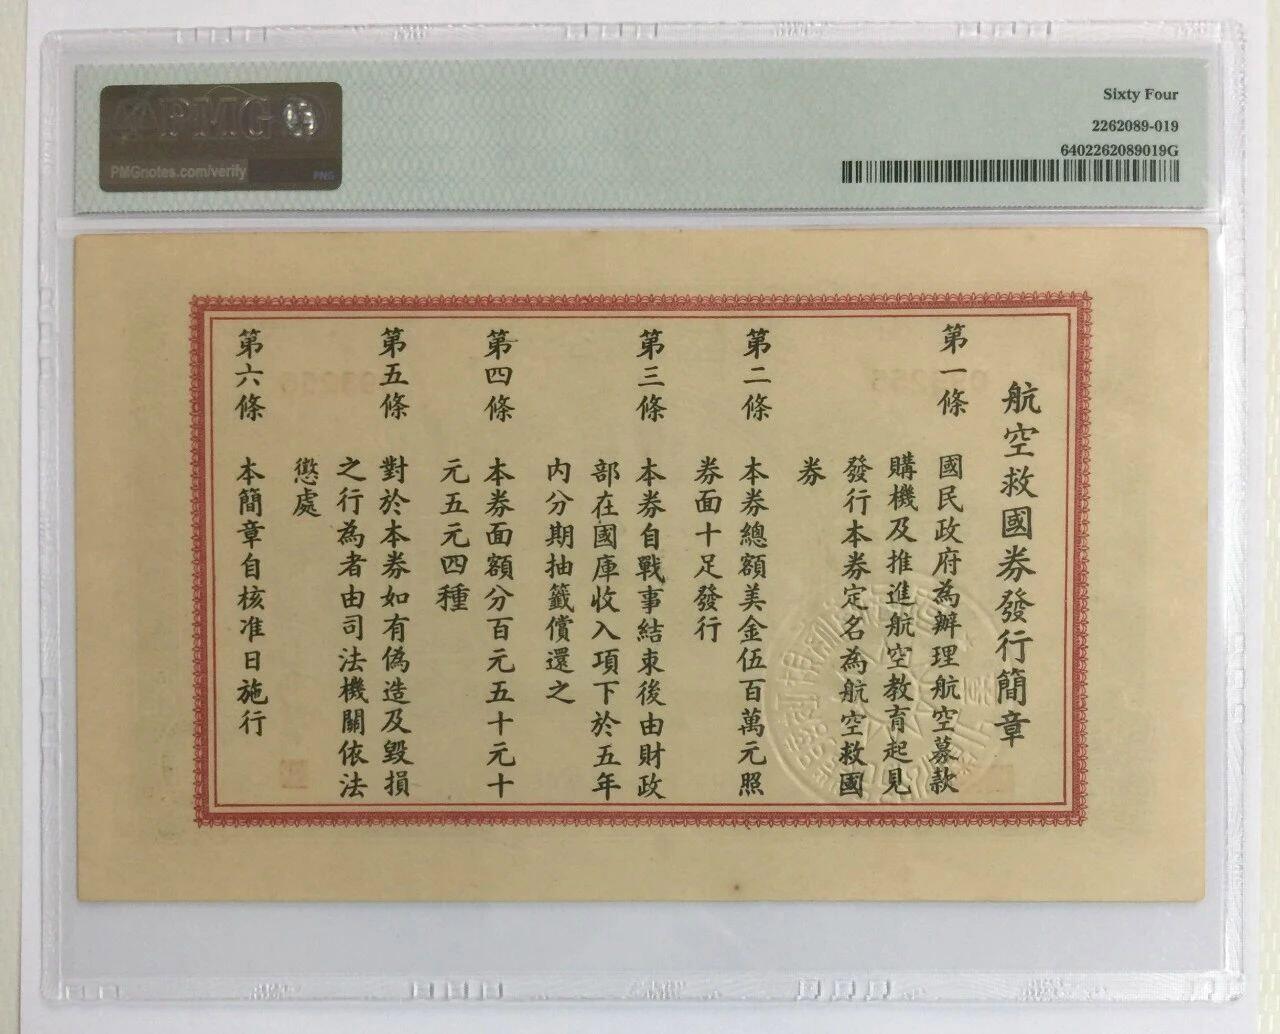 PMG
PMGnotes.com/verify
PNG
Sixty Four
2262089-019
6402262089019G
航空救國券發行簡章
第一條 國民政府為辦理航空募款
購機及推進航空教育起見
發行本券定名為航空救國
券
第二條 本券總額美金伍百萬元照
券面十足發行
第三條 本券自戰事結束後由財政
部在國庫收入項下於五年
內分期抽籤償還之
第四條 本券面額分百元五十元十
元五元四種
第五條 對於本券如有偽造及毀損
之行為者由司法機關依法
懲處
第六條 本簡章自核准日施行